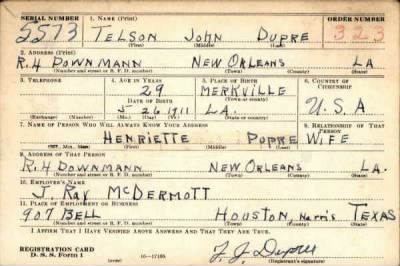 SERIAL NUMBER 1. NAME (Print) ORDER NUMBER
5573 TELSON JOHN DUPRE 323
(First) (Middle) (Last)
2. ADDRESS (Print)
R.H DOWNMANN NEW ORLEANS LA
(Number and street or R. F. D. number) (Town) (County) (State)
3. TELEPHONE 4. AGE IN YEARS 5. PLACE OF BIRTH 6. COUNTRY OF CITIZENSHIP
29 MERKVILLE
DATE OF BIRTH (Town or county)
5 26 1911 LA. U.S.A
(Exchange) (Number) (Mo.) (Day) (Yr.) (State or country)
7. NAME OF PERSON WHO WILL ALWAYS KNOW YOUR ADDRESS 8. RELATIONSHIP OF THAT PERSON
HENRIETTE DUPRE WIFE
(Mr., Mrs., Miss) (First) (Middle) (Last)
9. ADDRESS OF THAT PERSON
R.H DOWNMANN NEW ORLEANS LA.
(Number and street or R. F. D. number) (Town) (County) (State)
10. EMPLOYER'S NAME
J. RAY MCDERMOTT
11. PLACE OF EMPLOYMENT OR BUSINESS
907 BELL HOUSTON, Harris TEXAS
(Number and street or R. F. D. number) (Town) (County) (State)
I AFFIRM THAT I HAVE VERIFIED ABOVE ANSWERS AND THAT THEY ARE TRUE.
REGISTRATION CARD
D. S. S. Form 1 (over) 16—17105 T. J. Dupre
(Registrant's signature)